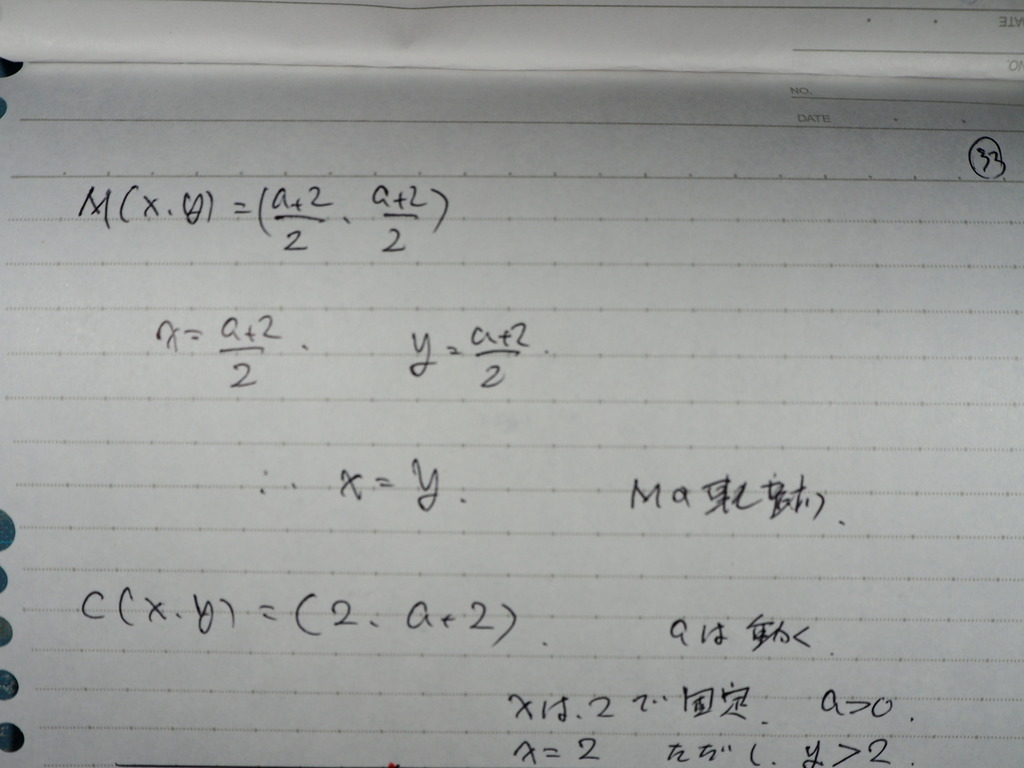 DATE
NO.
NO.
DATE
33
M(x.y) = (a+2/2 . a+2/2)
x = a+2/2 . y = a+2/2 .
∴ x = y . Mの軌跡 .
C(x.y) = (2. a+2) . aは動く .
xは.2で固定. a>0 .
x=2 ただし. y>2 .